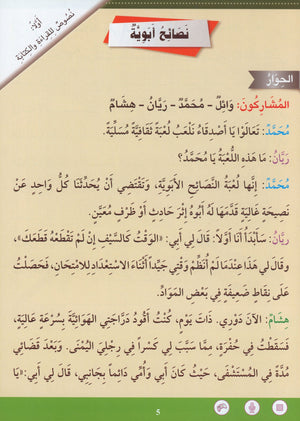 أَوَّلًا:
نُصُوصٌ لِلْقِرَاءَةِ وَالْكِتَابَةِ
نَصَائِحُ أَبَوِيَّةٌ
الحِوَارُ
المُشَارِكُونَ: وَائِلٌ - مُحَمَّدٌ - رَيَّانُ - هِشَامٌ
مُحَمَّدٌ: تَعَالَوْا يَا أَصْدِقَاءُ نَلْعَبُ لُعْبَةً ثَقَافِيَّةً مُسَلِّيَةً.
رَيَّانُ: مَا هَذِهِ اللُّعْبَةُ يَا مُحَمَّدُ؟
مُحَمَّدٌ: إِنَّهَا لُعْبَةُ النَّصَائِحِ الأَبَوِيَّةِ، وَتَقْتَضِي أَنْ يُحَدِّثَنَا كُلُّ وَاحِدٍ عَنْ
نَصِيحَةٍ غَالِيَةٍ قَدَّمَهَا لَهُ أَبُوهُ إِثْرَ حَادِثٍ أَوْ ظَرْفٍ مُعَيَّنٍ.
رَيَّانُ: سَأَبْدَأُ أَنَا أَوَّلًا: قَالَ لِي أَبِي: «الوَقْتُ كَالسَّيْفِ إِنْ لَمْ تَقْطَعْهُ قَطَعَكَ»،
وَقَالَ لِي هَذَا عِنْدَمَا لَمْ أُنَظِّمْ وَقْتِي جَيِّدًا أَثْنَاءَ الاسْتِعْدَادِ لِلامْتِحَانِ، فَحَصَلْتُ
عَلَى نِقَاطٍ ضَعِيفَةٍ فِي بَعْضِ المَوَادِّ.
هِشَامٌ: الآنَ دَوْرِي. ذَاتَ يَوْمٍ، كُنْتُ أَقُودُ دَرَّاجَتِي الهَوَائِيَّةَ بِسُرْعَةٍ عَالِيَةٍ،
فَسَقَطْتُ فِي حُفْرَةٍ، مِمَّا سَبَّبَ لِي كَسْرًا فِي رِجْلِيَ اليُمْنَى. وَبَعْدَ قَضَائِي
مُدَّةً فِي المُسْتَشْفَى، حَيْثُ كَانَ أَبِي وَأُمِّي دَائِمًا بِجَانِبِي، قَالَ لِي أَبِي: «يَا
5